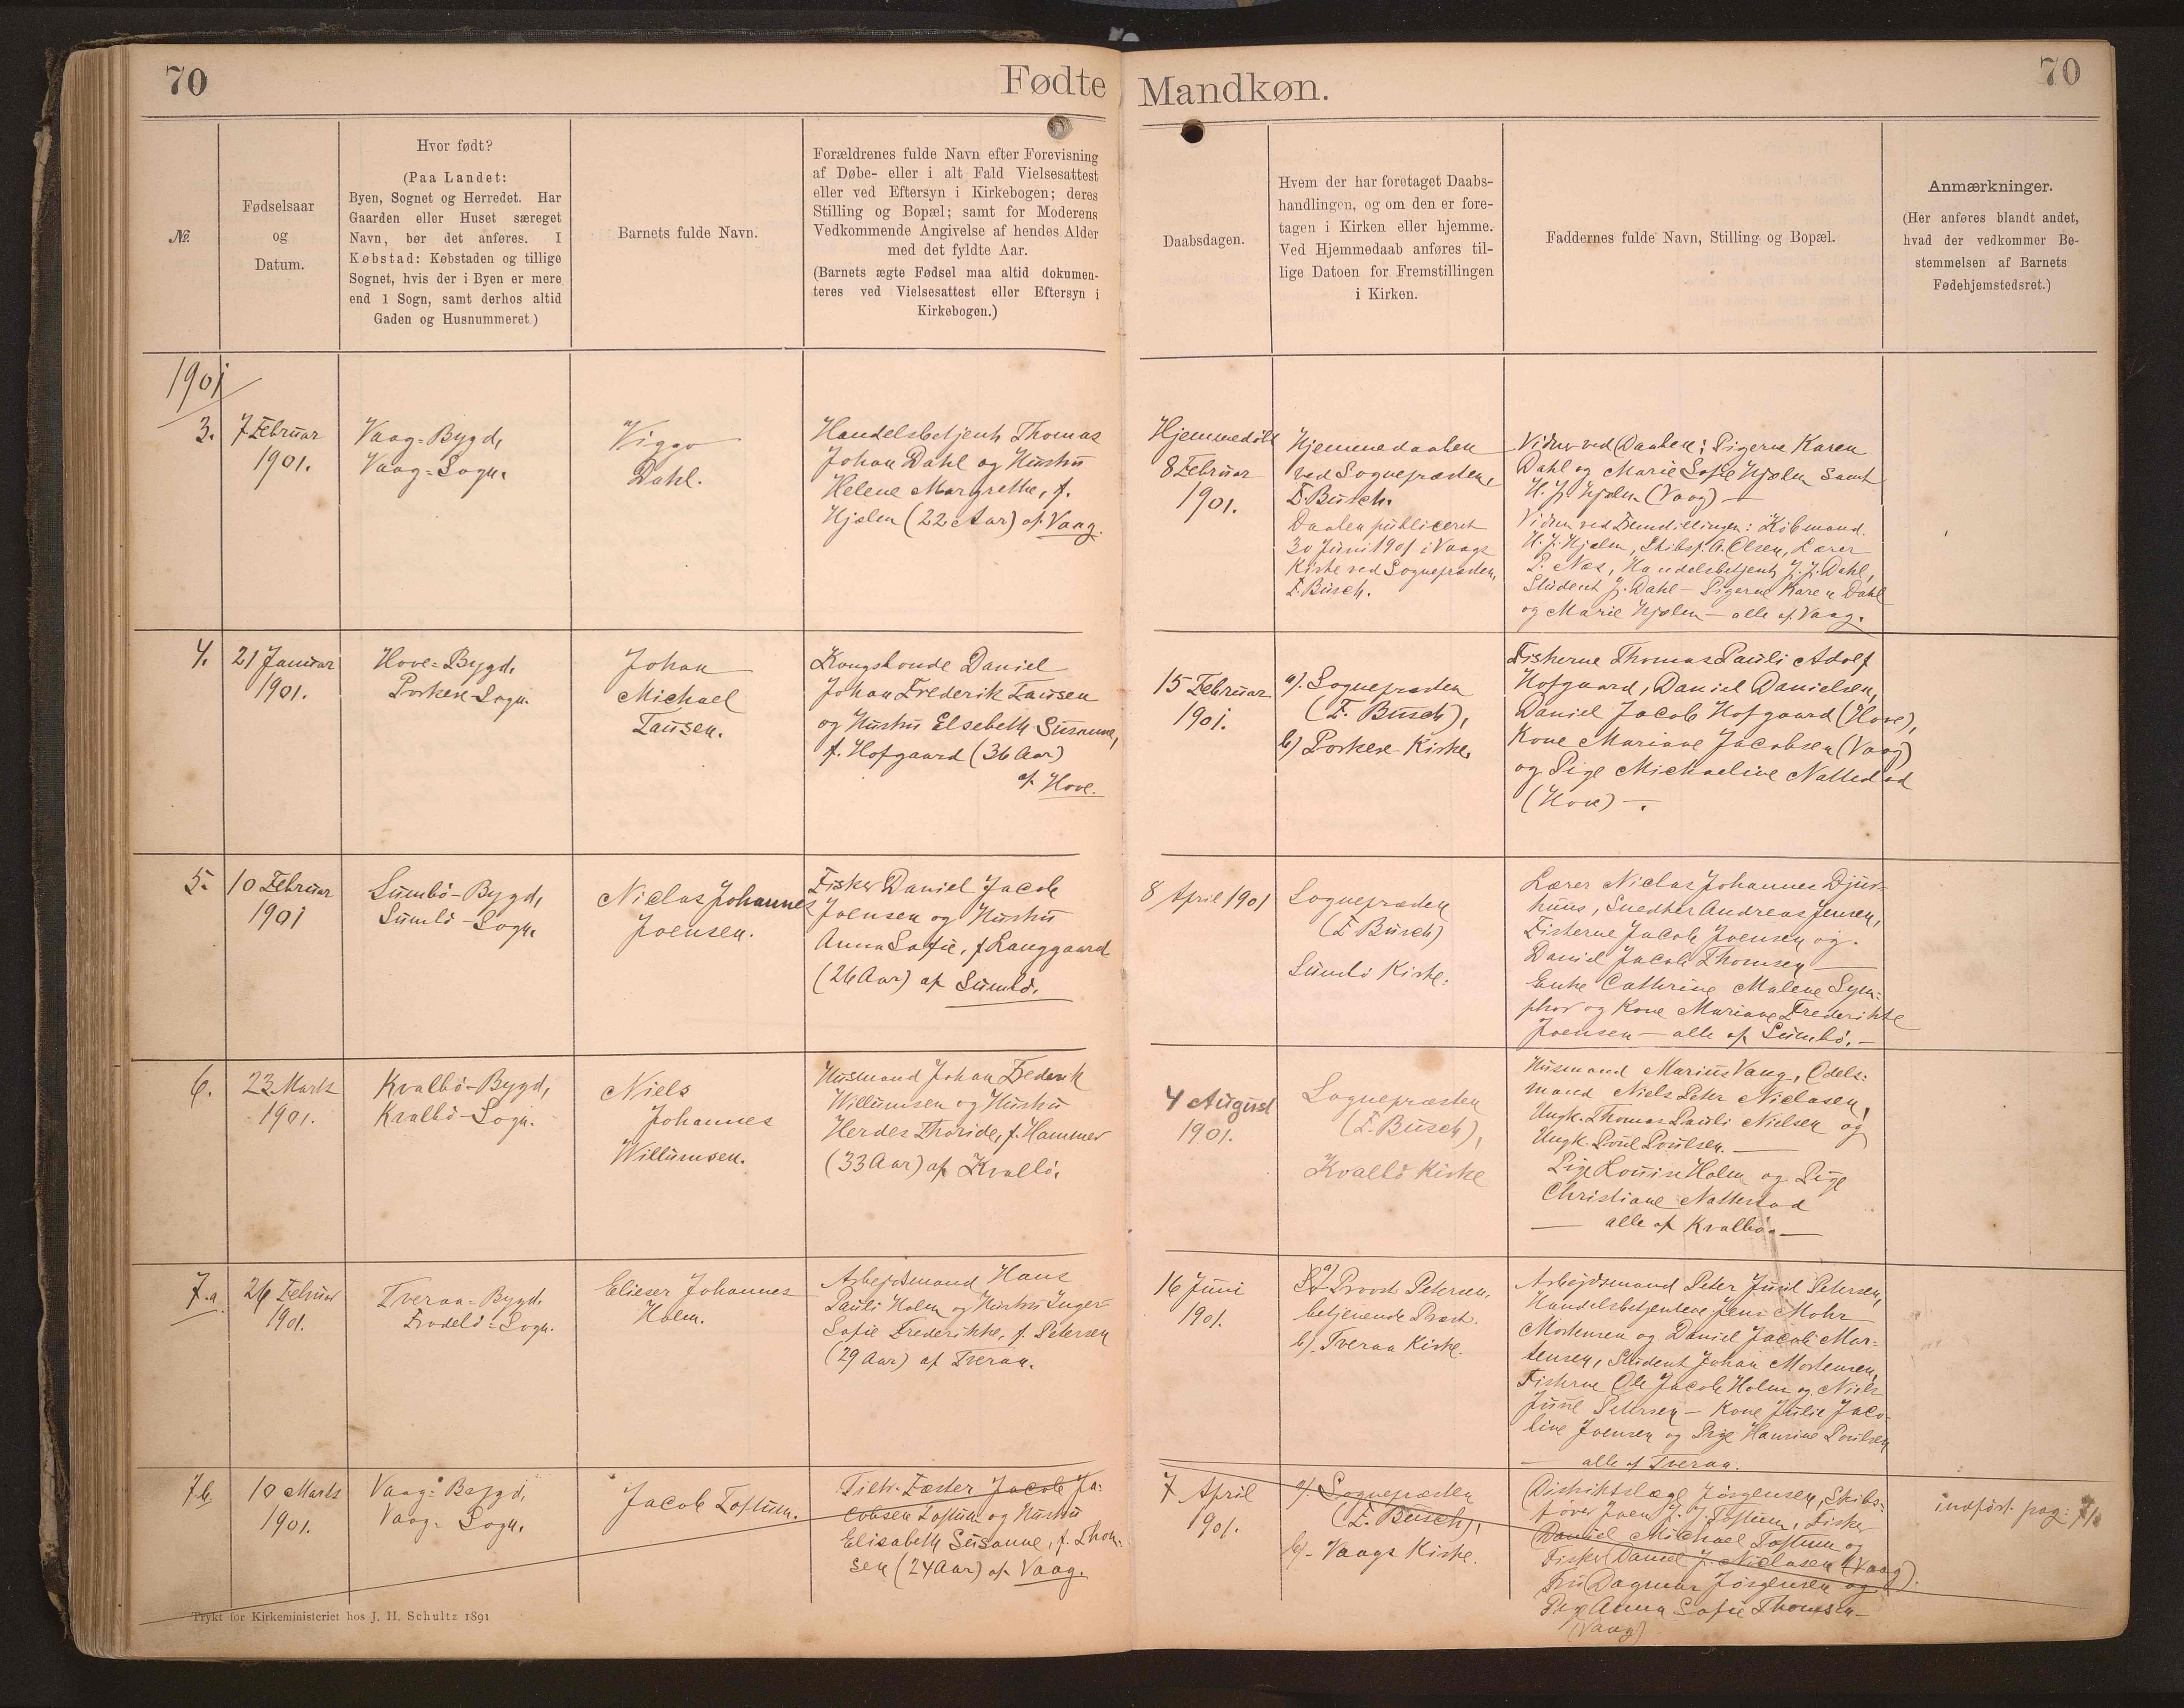 70
Fødte
Mandkøn.
70
№
Fødselsaar
og
Datum.
Hvor født?
(Paa Landet:
Byen, Sognet og Herredet. Har
Gaarden eller Huset særeget
Navn, bør det anføres. I
Købstad: Købstaden og tillige
Sognet, hvis der i Byen er mere
end 1 Sogn, samt derhos altid
Gaden og Husnummeret.)
Barnets fulde Navn.
Forældrenes fulde Navn efter Forevisning
af Døbe- eller i alt Fald Vielsesattest
eller ved Eftersyn i Kirkebogen; deres
Stilling og Bopæl; samt for Moderens
Vedkommende Angivelse af hendes Alder
med det fyldte Aar.
(Barnets ægte Fødsel maa altid dokumen-
teres ved Vielsesattest eller Eftersyn i
Kirkebogen.)
Daabsdagen.
Hvem der har foretaget Daabs-
handlingen, og om den er fore-
tagen i Kirken eller hjemme.
Ved Hjemmedaab anføres til-
lige Datoen for Fremstillingen
i Kirken.
Faddernes fulde Navn, Stilling og Bopæl.
Anmærkninger.
(Her anføres blandt andet,
hvad der vedkommer Be-
stemmelsen af Barnets
Fødehjemstedsret.)
1901
3.
7 Februar
1901.
Vaag-Bygd,
Vaag-Sogn.
Viggo
Dahl.
Handelsbetjent Thomas
Johan Dahl og Hustru
Helene Margrethe, f.
Hjølm (22 Aar) af Vaag.
Hjemmedøbt
8 Februar
1901.
Hjemmedaaben
ved Sognepræsten,
F. Busch.
Daaben publiceret
30 Juni 1901 i Vaags
Kirke ved Sognepræsten,
F. Busch.
Vidner ved Daaben: Pigerne Karen
Dahl og Marie Sofie Hjølm samt
H. J. Hjølm (Vaag) —
Vidner ved Fremstillingen: Købmand
H. J. Hjølm, Skibsf. A. Olsen, Lærer
P. Næs, Handelsbetjent J. J. Dahl,
Student J. Dahl — Pigerne Karen Dahl
og Marie Hjølm — alle af Vaag.
4.
21 Januar
1901.
Hove-Bygd,
Porkere-Sogn.
Johan
Michael
Tausen.
Kongsbonde Daniel
Johan Frederik Tausen
og Hustru Elsebeth Susanne,
f. Hofgaard (36 Aar)
af Hove.
15 Februar
1901.
a). Sognepræsten
(F. Busch),
b) Porkere-Kirke
Fiskerne Thomas Pauli Adolf
Hofgaard, Daniel Danielsen,
Daniel Jacob Hofgaard (Hove),
Kone Mariane Jacobsen (Vaag)
og Pige Michaeline Nattestad
(Hove) —.
5.
10 Februar
1901
Sumbø-Bygd,
Sumbø-Sogn
Niclas Johannes
Joensen.
Fisker Daniel Jacob
Joensen og Hustru
Anna Sofie, f. Langgaard
(26 Aar) af Sumbø.
8 April 1901
Sognepræsten
(F. Busch)
Sumbø Kirke.
Lærer Niclas Johannes Djur-
huus, Snedker Andreas Jensen,
Fiskerne Jacob Joensen og
Daniel Jacob Thomsen —
Enke Cathrine Malene Sym-
phor og Kone Mariane Frederikke
Joensen — alle af Sumbø. —
6.
23 Marts
1901.
Kvalbø-Bygd,
Kvalbø-Sogn.
Niels
Johannes
Willumsen.
Husmand Johan Frederik
Willumsen og Hustru
Herdes Thoride, f. Hammer
(33 Aar) af Kvalbø.
4 August
1901.
Sognepræsten
(F. Busch),
Kvalbø Kirke
Husmand Marius Vang, Odels-
mand Niels Peter Niclasen,
Ungk. Thomas Pauli Nielsen og
Ungk. Poul Poulsen. —
Pige Louise Holm og Pige
Christiane Nattestad
— alle af Kvalbø. —
7.a
26 Februar
1901.
Tveraa-Bygd,
Frodebø-Sogn.
Elieser Johannes
Holm.
Arbejdsmand Hans
Pauli Holm og Hustru Inger
Sofie Frederikke, f. Petersen
(29 Aar) af Tveraa.
16 Juni
1901.
a) Provst Petersen,
betjenende Præst.
b). Tveraa Kirke.
Arbejdsmand Peter Juul Petersen,
Handelsbetjentene Jens Mohr
Mortensen og Daniel Jacob Mor-
tensen, Student Johan Mortensen,
Fiskerne Ole Jacob Holm og Niels
Juul Petersen — Kone Julie Jaco-
bine Joensen og Pige Hansine Poulsen
— alle af Tveraa.
7b
10 Marts
1901.
Vaag-Bygd,
Vaag-Sogn.
Jacob Toftum.
Fæster Jacob Ja-
cobsen Toftum og Hustru
Elisabeth Susanne, f. Thom-
sen (24 Aar) af Vaag.
7 April
1901.
a). Sognepræsten
(F. Busch),
b). Vaags Kirke.
Distriktslæge Jørgensen, Skibs-
fører Joen J. J. Toftum, Fisker
Daniel Michael Toftum og
Fisker Daniel J. Niclasen (Vaag).
Fru Dagmar Jørgensen og
Pige Anna Sofie Thomsen —
(Vaag)
indført pag: 71.
Trykt for Kirkeministeriet hos J. H. Schultz 1891